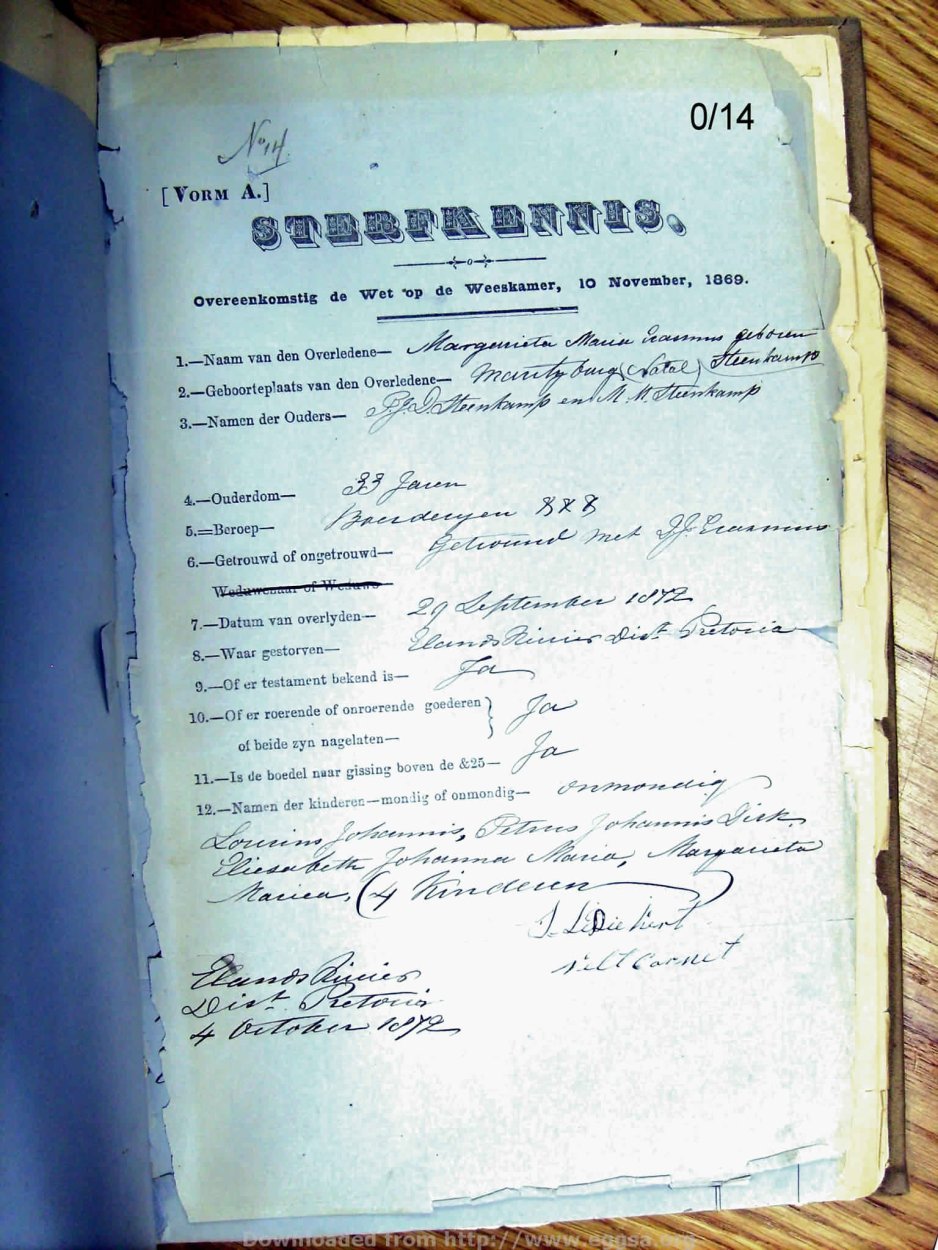 0/14
No 14
[VORM A.]
STERFKENNIS.
Overeenkomstig de Wet op de Weeskamer, 10 November, 1869.
1.—Naam van den Overledene— Margarieta Maria Erasmus geboren
Steenkamp
2.—Geboorteplaats van den Overledene— Maritzburg (Natal)
3.—Namen der Ouders— P.J.D. Steenkamp en M. M. Steenkamp
4.—Ouderdom— 33 Jaren
5.=Beroep— Boerderyen
6.—Getrouwd of ongetrouwd— Getrouwd met Erasmus
Weduwenaar of Weduwe
7.—Datum van overlyden— 29 September 1872
8.—Waar gestorven— Elands Rivier Dist. Pretoria
9.—Of er testament bekend is— Ja
10.—Of er roerende of onroerende goederen } Ja
of beide zyn nagelaten—
11.—Is de boedel naar gissing boven de &25— Ja
12.—Namen der kinderen—mondig of onmondig— onmondig
Lourins Johannis, Petrus Johannis Dirk,
Eliesabeth Johanna Maria, Margarieta
Mariea, (4 Kinderen)
Velt Cornet
Elands Rivier
Dist. Pretoria
4 October 1872
Downloaded from http://www.eggsa.org